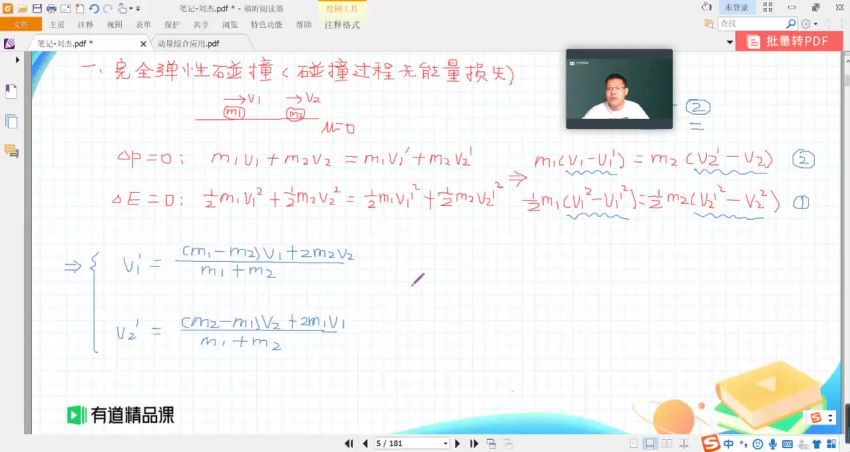 笔记-刘杰.pdf * - 福昕阅读器
绘图工具
未登录
文件 主页 注释 视图 表单 保护 共享 浏览 特色功能 帮助 注释格式
查找
笔记-刘杰.pdf *
动量综合应用.pdf
批量转PDF
一、完全弹性碰撞(碰撞过程无能量损失)
→V₁ →V₂
m₁ m₂
μ=0
②
=
ΔP=0: m₁V₁+m₂V₂=m₁V₁'+m₂V₂' ⇒ m₁(V₁-V₁')=m₂(V₂'-V₂) ②
ΔE=0: ½m₁V₁²+½m₂V₂²=½m₁V₁'²+½m₂V₂'² ½m₁(V₁²-V₁'²)=½m₂(V₂'²-V₂²) ①
⇒ { V₁' = (m₁-m₂)V₁+2m₂V₂ / m₁+m₂
V₂' = (m₂-m₁)V₂+2m₁V₁ / m₁+m₂
有道精品课
5 / 181
中